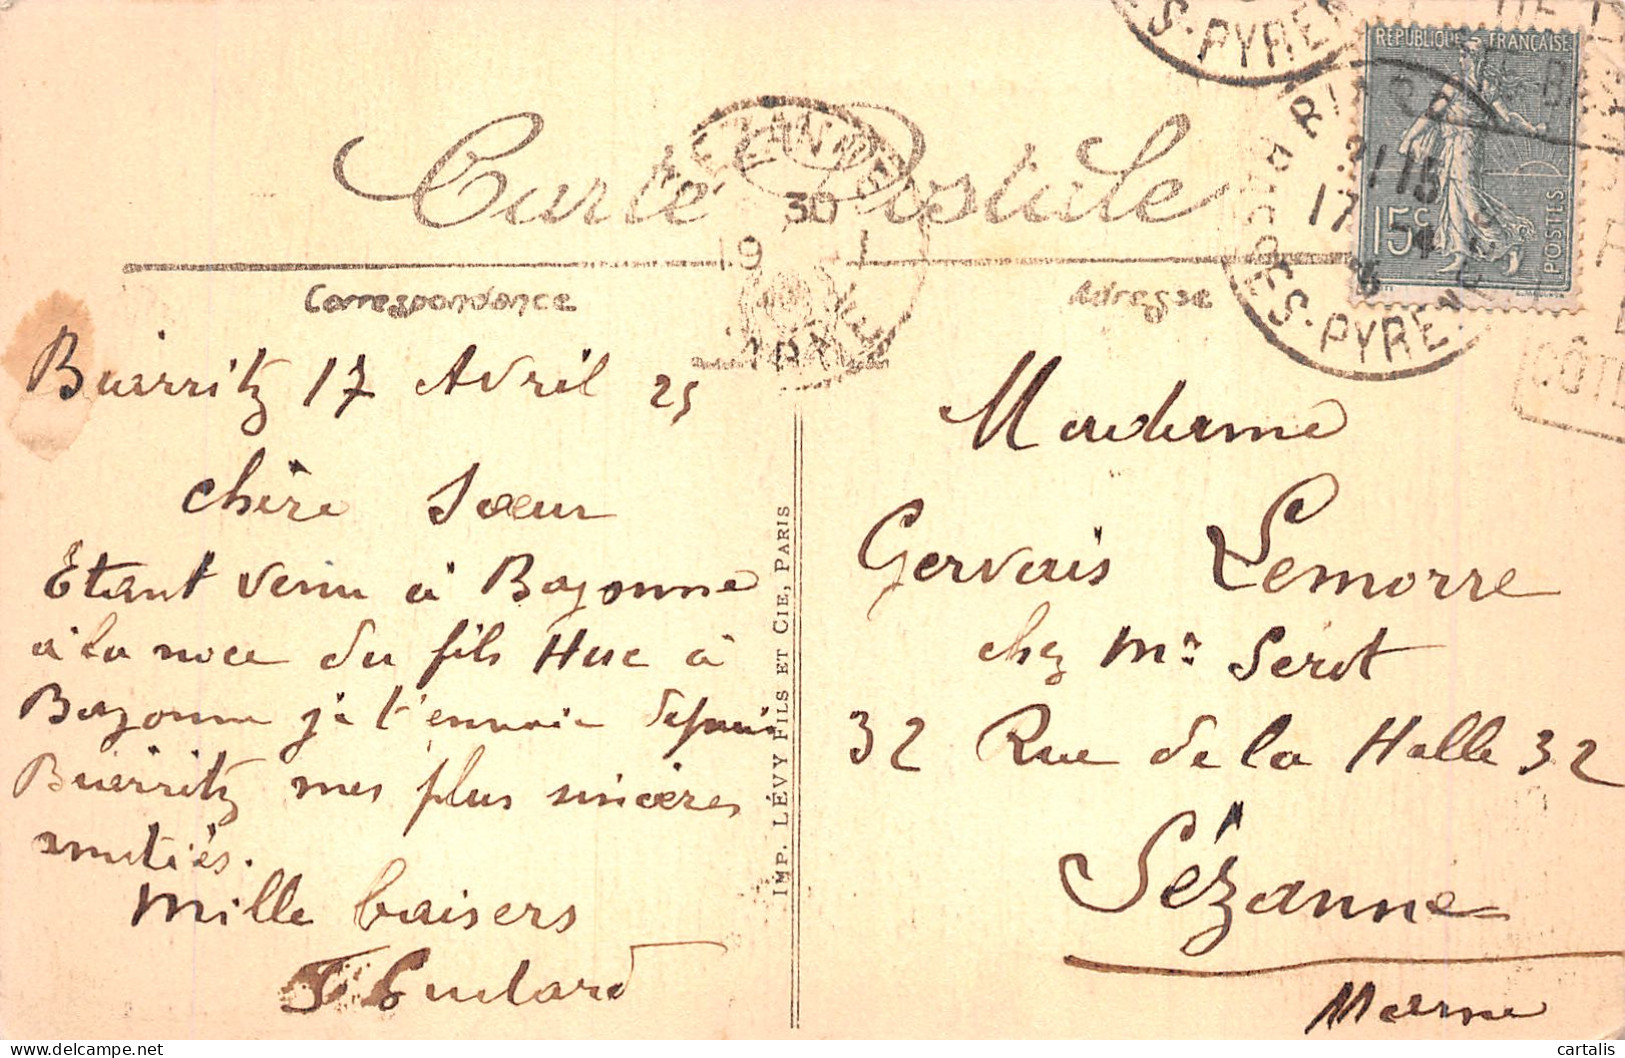 RÉPUBLIQUE FRANÇAISE
15c
POSTES
Carte Postale
SÉZANNE
30
19 1
MARNE
BIARRITZ
21 15
17 - 4
BSES-PYRÉNÉES
ES-PYRÉ
CÔTE
Correspondance
Adresse
Biarritz 17 Avril 25
chère Sœur
Etant venu à Bayonne
à la noce du fils Huc à
Bayonne je t'envoie depuis
Biarritz mes plus sincères
amitiés.
Mille baisers
IMP. LÉVY FILS ET CIE, PARIS
Madame
Gervais Lemorre
chez Mr Serot
32 Rue de la Halle 32
Sézanne
Marne
cartalis